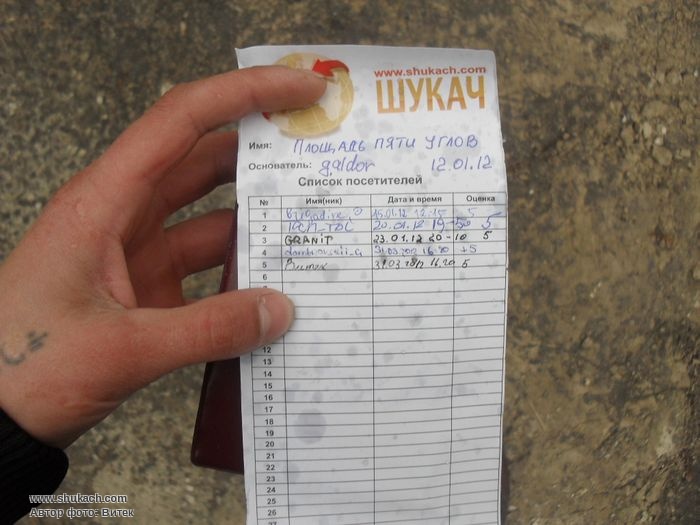 www.shukach.com
ШУКАЧ
Имя: ПЛОЩАДЬ ПЯТИ УГЛОВ
Основатель: galdor 12.01.12
Список посетителей
№ Имя(ник) Дата и время Оценка
1 15.01.12 12-15 5
2 20.01.12 19-50 5
3 GRANIT 23.01.12 20-10 5
4 31.03.2012 16.20 +5
5 Витек 31.03.2012 16.20 5
6
12
13
14
15
16
17
18
19
20
21
22
23
24
25
26
27
www.shukach.com
Автор фото: Витек